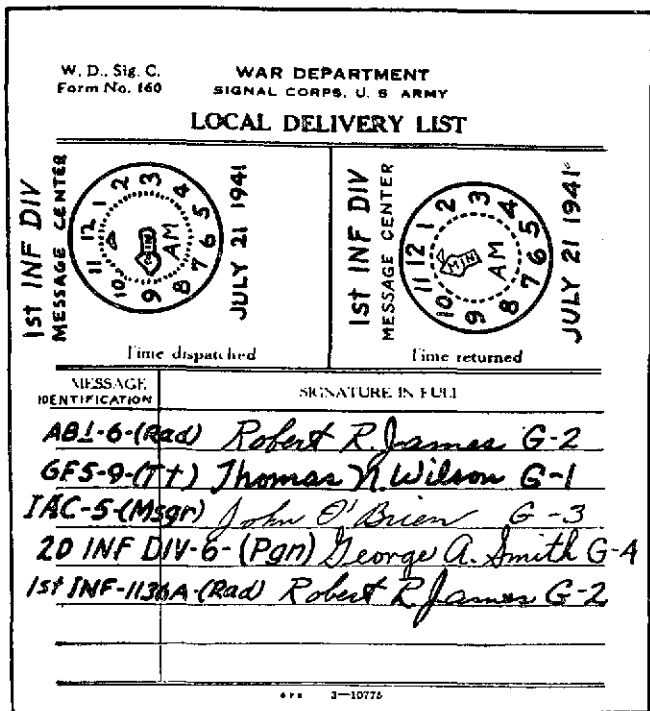 W. D., Sig. C.
Form No. 160
WAR DEPARTMENT
SIGNAL CORPS, U. S. ARMY
LOCAL DELIVERY LIST
1st INF DIV
MESSAGE CENTER
12 1 2 3 4 5 6 7 8 9 10 11
AM
JULY 21 1941
Time dispatched
1st INF DIV
MESSAGE CENTER
12 1 2 3 4 5 6 7 8 9 10 11
MIN
AM
JULY 21 1941
Time returned
MESSAGE
IDENTIFICATION
SIGNATURE IN FULL
AB1-6-(Rad) Robert R. James G-2
GF5-9-(Tt) Thomas N. Wilson G-1
IAC-5-(Msgr) John O'Brien G-3
2D INF DIV-6-(Pgn) George A. Smith G-4
1st INF-1136A-(Rad) Robert R. James G-2
3—10775